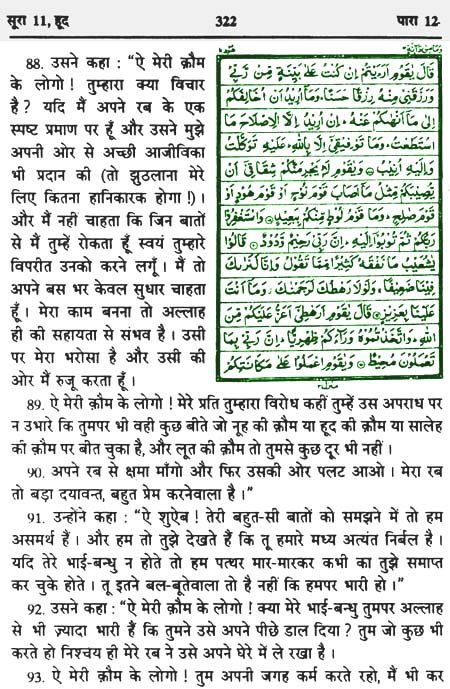 सूरा 11, हूद
322
पारा 12
88. उसने कहा : "ऐ मेरी क़ौम
के लोगो ! तुम्हारा क्या विचार
है? यदि मैं अपने रब के एक
स्पष्ट प्रमाण पर हूँ और उसने मुझे
अपनी ओर से अच्छी आजीविका
भी प्रदान की (तो झुठलाना मेरे
लिए कितना हानिकारक होगा !)।
और मैं नहीं चाहता कि जिन बातों
से मैं तुम्हें रोकता हूँ स्वयं तुम्हारे
विपरीत उनको करने लगूँ। मैं तो
अपने बस भर केवल सुधार चाहता
हूँ। मेरा काम बनना तो अल्लाह
ही की सहायता से संभव है। उसी
पर मेरा भरोसा है और उसी की
ओर मैं रुजू करता हूँ।
قَالَ يٰقَوْمِ اَرَءَيْتُمْ اِنْ كُنْتُ عَلٰى بَيِّنَةٍ مِّنْ رَّبِّيْ
وَرَزَقَنِيْ مِنْهُ رِزْقًا حَسَنًا ۚ وَمَآ اُرِيْدُ اَنْ اُخَالِفَكُمْ
اِلٰى مَآ اَنْهٰىكُمْ عَنْهُ ۚ اِنْ اُرِيْدُ اِلَّا الْاِصْلَاحَ مَا
اسْتَطَعْتُ ۚ وَمَا تَوْفِيْقِيْٓ اِلَّا بِاللّٰهِ ۚ عَلَيْهِ تَوَكَّلْتُ
وَاِلَيْهِ اُنِيْبُ ۝ وَيٰقَوْمِ لَا يَجْرِمَنَّكُمْ شِقَاقِيْٓ اَنْ
يُّصِيْبَكُمْ مِّثْلُ مَآ اَصَابَ قَوْمَ نُوْحٍ اَوْ قَوْمَ هُوْدٍ اَوْ
قَوْمَ صٰلِحٍ ۚ وَمَا قَوْمُ لُوْطٍ مِّنْكُمْ بِبَعِيْدٍ ۝ وَاسْتَغْفِرُوْا
رَبَّكُمْ ثُمَّ تُوْبُوْٓا اِلَيْهِ ۚ اِنَّ رَبِّيْ رَحِيْمٌ وَّدُوْدٌ ۝ قَالُوْا
يٰشُعَيْبُ مَا نَفْقَهُ كَثِيْرًا مِّمَّا تَقُوْلُ وَاِنَّا لَنَرٰىكَ
فِيْنَا ضَعِيْفًا ۚ وَلَوْلَا رَهْطُكَ لَرَجَمْنٰكَ ۚ وَمَآ اَنْتَ
عَلَيْنَا بِعَزِيْزٍ ۝ قَالَ يٰقَوْمِ اَرَهْطِيْٓ اَعَزُّ عَلَيْكُمْ مِّنَ
اللّٰهِ ۚ وَاتَّخَذْتُمُوْهُ وَرَآءَكُمْ ظِهْرِيًّا ۚ اِنَّ رَبِّيْ بِمَا
تَعْمَلُوْنَ مُحِيْطٌ ۝ وَيٰقَوْمِ اعْمَلُوْا عَلٰى مَكَانَتِكُمْ
89. ऐ मेरी क़ौम के लोगो ! मेरे प्रति तुम्हारा विरोध कहीं तुम्हें उस अपराध पर
न उभारे कि तुमपर भी वही कुछ बीते जो नूह की क़ौम या हूद की क़ौम या सालेह
की क़ौम पर बीत चुका है, और लूत की क़ौम तो तुमसे कुछ दूर भी नहीं।
90. अपने रब से क्षमा माँगो और फिर उसकी ओर पलट आओ। मेरा रब
तो बड़ा दयावन्त, बहुत प्रेम करनेवाला है।"
91. उन्होंने कहा : "ऐ शुऐब ! तेरी बहुत-सी बातों को समझने में तो हम
असमर्थ हैं। और हम तो तुझे देखते हैं कि तू हमारे मध्य अत्यंत निर्बल है।
यदि तेरे भाई-बन्धु न होते तो हम पत्थर मार-मारकर कभी का तुझे समाप्त
कर चुके होते। तू इतने बल-बूतेवाला तो है नहीं कि हमपर भारी हो।"
92. उसने कहा : "ऐ मेरी क़ौम के लोगो ! क्या मेरे भाई-बन्धु तुमपर अल्लाह
से भी ज़्यादा भारी हैं कि तुमने उसे अपने पीछे डाल दिया? तुम जो कुछ भी
करते हो निश्चय ही मेरे रब ने उसे अपने घेरे में ले रखा है।
93. ऐ मेरी क़ौम के लोगो ! तुम अपनी जगह कर्म करते रहो, मैं भी कर